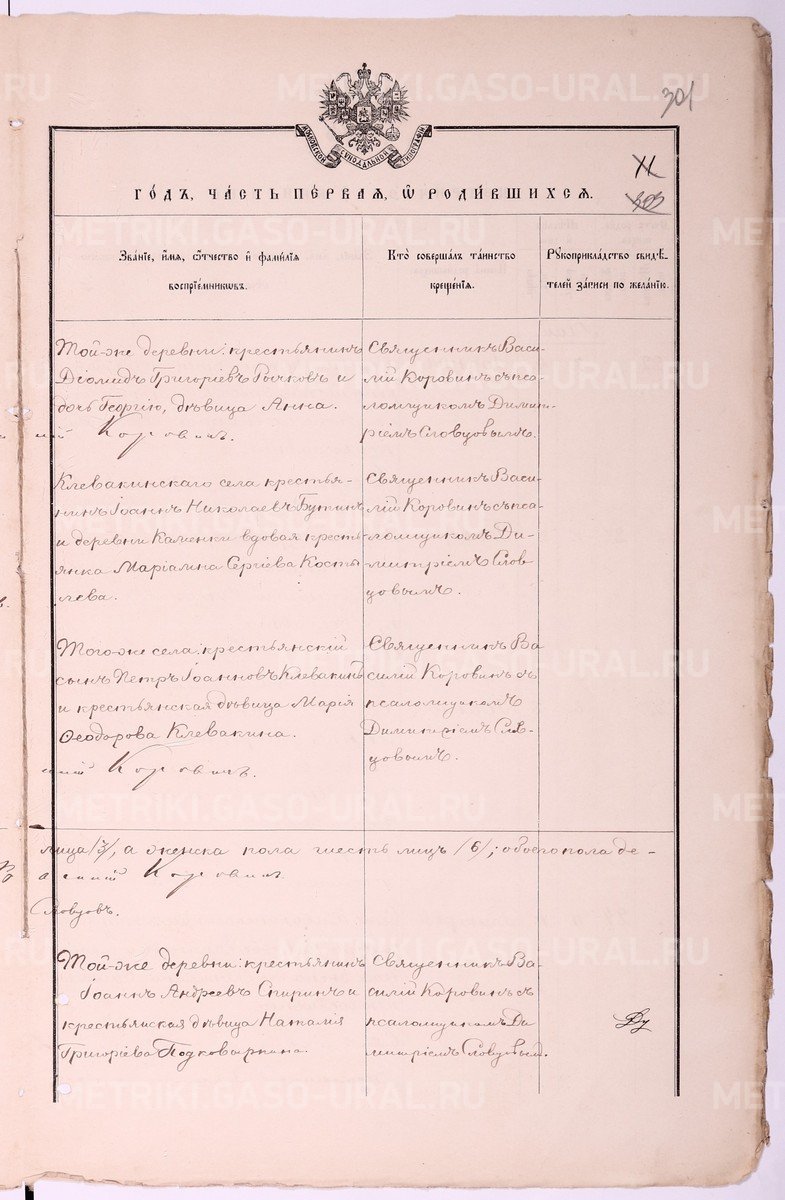 301
МОСКОВСКОЙ СѴНОДАЛЬНОЙ ТИПОГРАФІИ
11
303
ГО́ДЪ, ЧА́СТЬ ПЕ́РВАЯ, Ѡ҆ РОДИ́ВШИХСЯ.
Зва́нїе, и҆́мя, ѻ҆́тчество и҆ фами́лїя
воспрїе́мникѡвъ.
Кто̀ соверша́лъ та́инство
креще́нїѧ.
Рꙋкоприкла́дство свидѣ́-
телей за́писи по жела́нїю.
Той-же деревни: крестьянинъ
Діомидъ Григоріевъ Рычковъ и
дочь Георгію, дѣвица Анна.
Священникъ Васи-
лій Коровинъ съ пса-
ломщикомъ Димит-
ріемъ Словцовымъ.
ій Коровинъ.
Клевакинскаго села крестья-
нинъ Іоаннъ Николаевъ Бутинъ
и деревни Каменки вдовая кресть-
янка Маріамна Сергіева Косты
лева.
Священникъ Васи-
лій Коровинъ съ пса-
ломщикомъ Ди-
митріемъ Слов-
цовымъ.
Того-же села: крестьянскій
сынъ Петръ Іоанновъ Клевакинъ
и крестьянская дѣвица Марія
Ѳеодорова Клевакина.
Священникъ Ва
силій Коровинъ съ
псаломщикомъ
Димитріемъ Слов-
цовымъ.
ій Коровинъ.
лица /3/, а женска пола шесть лицъ /6/; обоего пола де-
силій Коровинъ
Словцовъ.
Той-же деревни: крестьянинъ
Іоаннъ Андреевъ Спиринъ и
крестьянская дѣвица Наталія
Григоріева Подковыркина.
Священникъ Ва-
силій Коровинъ съ
псаломщикомъ Ди
митріемъ Словцовым.
METRIKI.GASO-URAL.RU